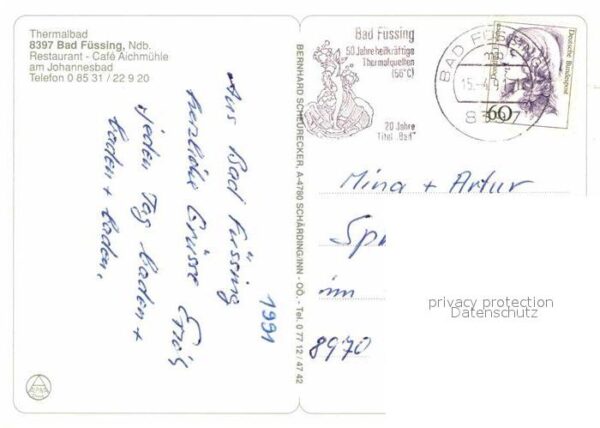 Thermalbad
8397 Bad Füssing, Ndb.
Restaurant - Café Aichmühle
am Johannesbad
Telefon 0 85 31 / 22 9 20
Aus Bad Füssing
herzliche Grüsse
jeden Tag baden +
baden + baden.
1991
BERNHARD SCHEURECKER, A-4780 SCHÄRDING/INN - OÖ. - Tel. 0 77 12 / 47 42
Bad Füssing
50 Jahre heilkräftige
Thermalquellen
(56°C)
20 Jahre
Titel "Bad"
BAD FÜSSING
Deutsche Bundespost
60
Mina + Artur
im
8970
privacy protection
Datenschutz